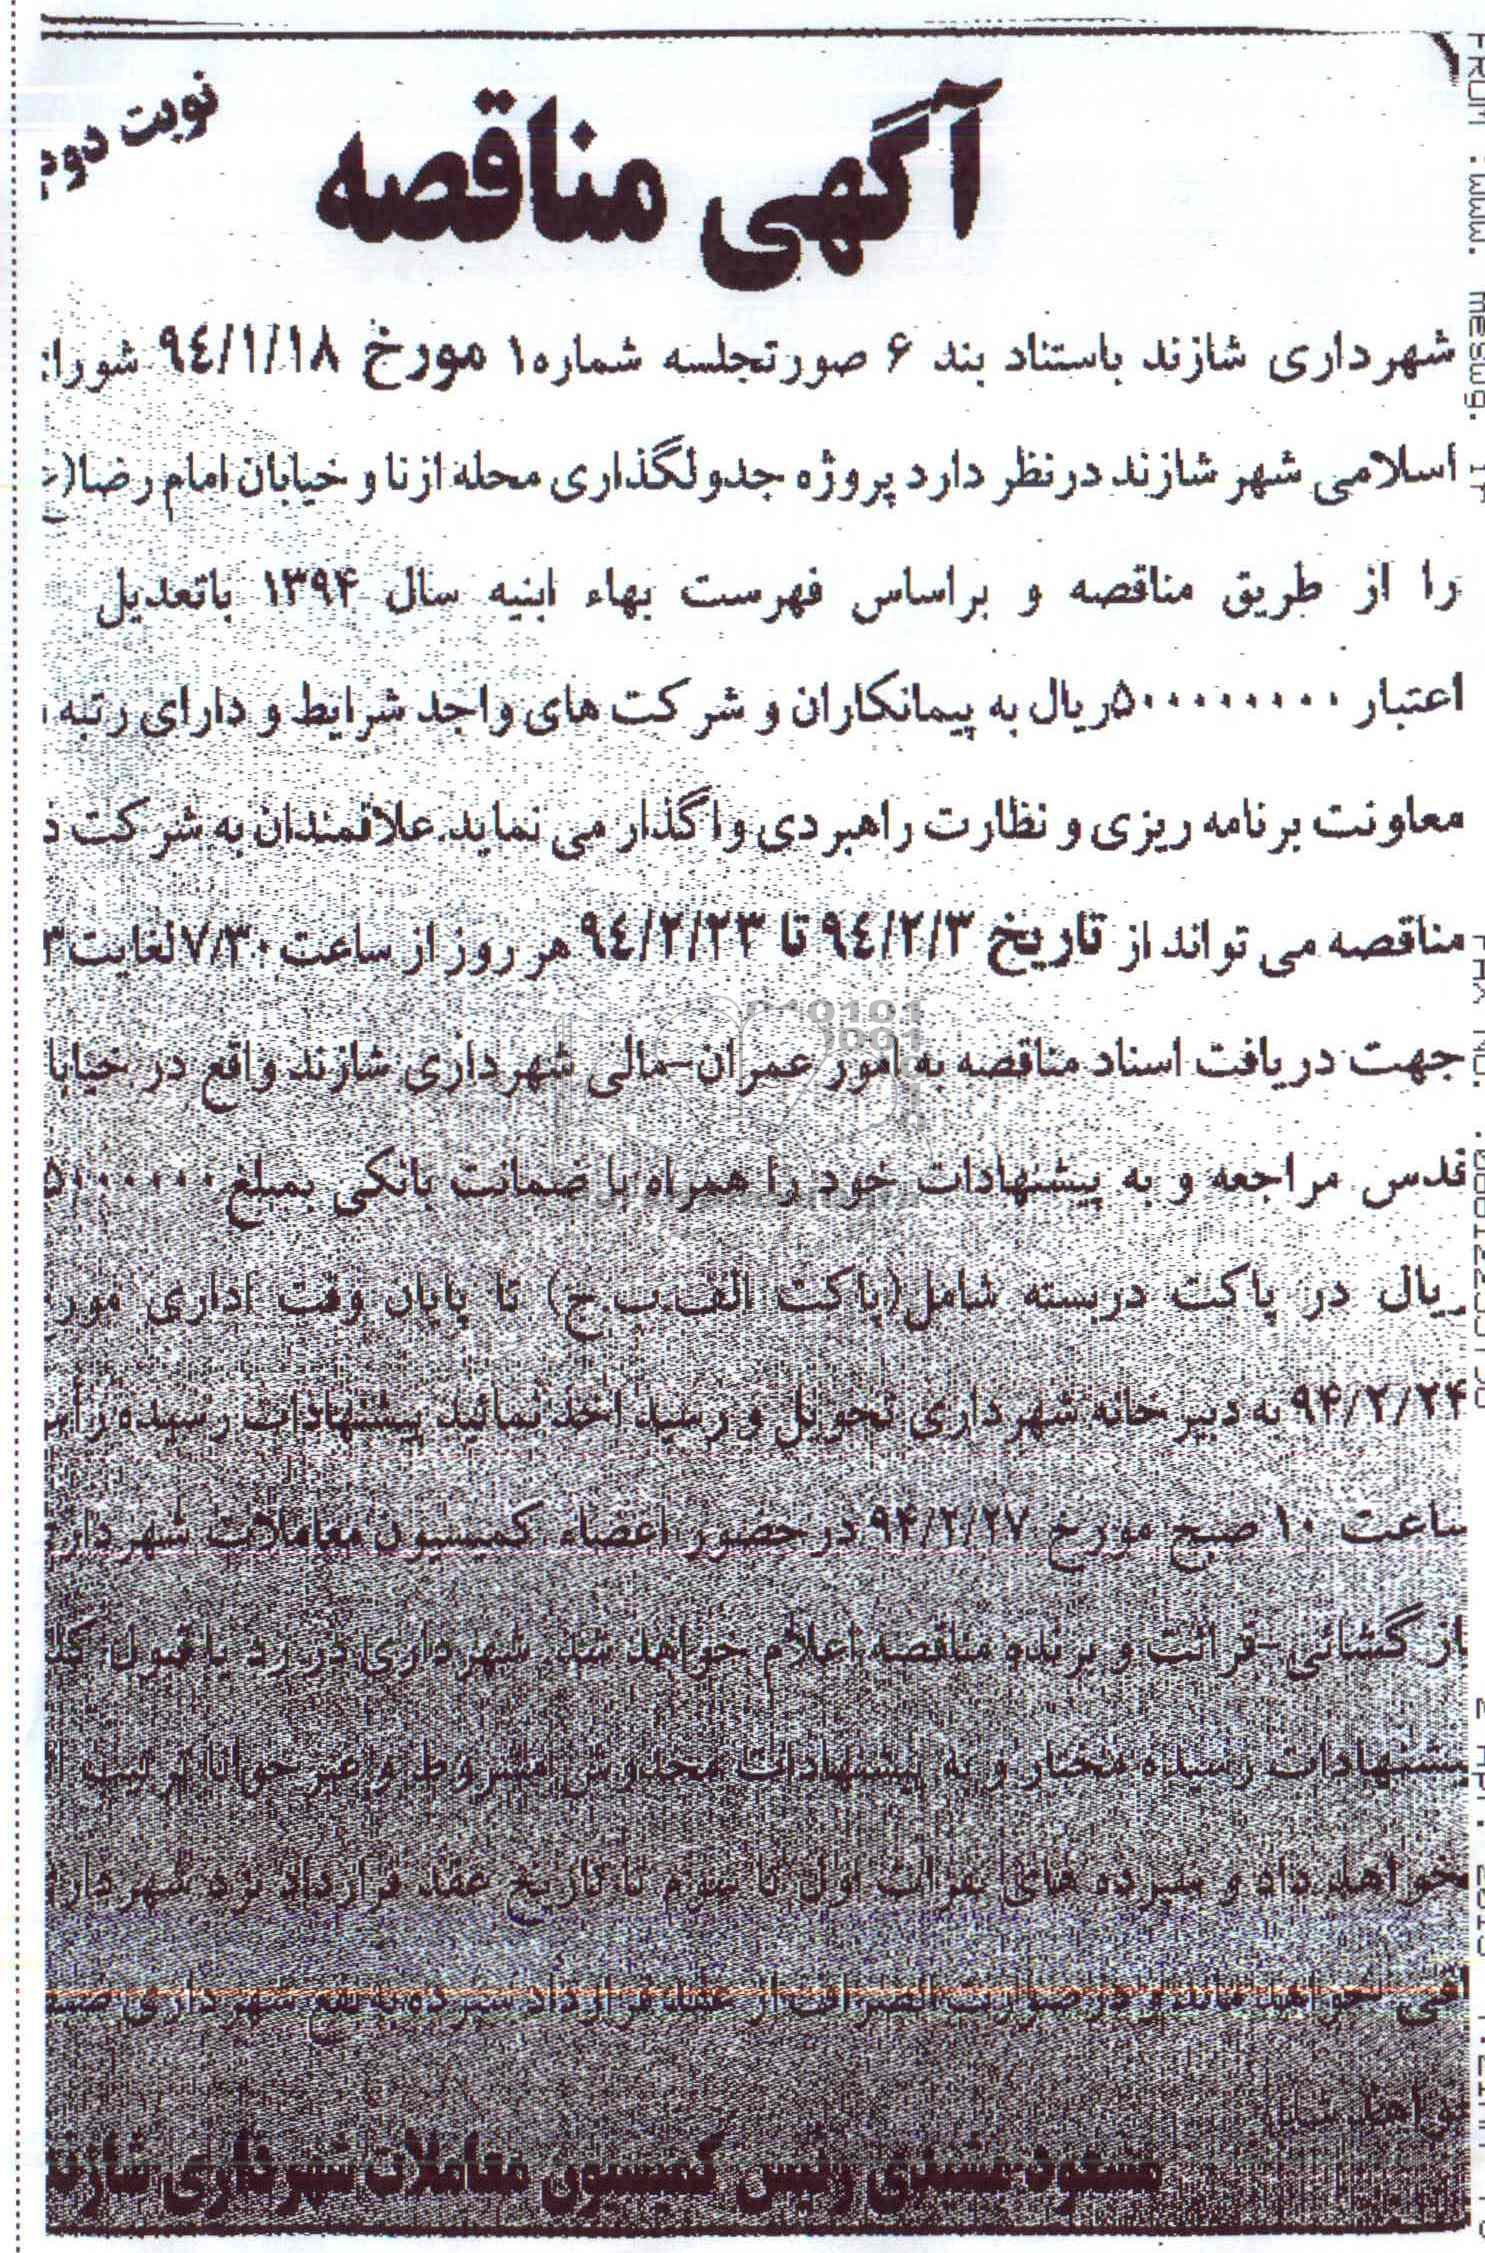 نوبت دوم
آگهی مناقصه
شهرداری شازند باستناد بند ۶ صورتجلسه شماره۱ مورخ ۹٤/۱/۱۸
اسلامی شهر شازند درنظر دارد پروژه جدولگذاری محله ازنا و خیابان امام رضا(ع
را از طریق مناقصه و براساس فهرست بهاء ابنیه سال ۱۳۹۴ باتعدیل
اعتبار ۵۰۰۰۰۰۰۰۰۰ریال به پیمانکاران و شرکت های واجد شرایط و دارای رتبه
معاونت برنامه ریزی و نظارت راهبردی واگذار می نماید.علاقمندان به شرکت د
مناقصه می تواند از تاریخ ۹٤/۲/۳ تا ۹٤/۲/۲۳ هر روز از ساعت ۷/۳۰لغایت
جهت دریافت اسناد مناقصه به امور عمران-مالی شهرداری شازند واقع در خیابا
قدس مراجعه و به پیشنهادات خود را همراه با ضمانت بانکی بمبلغ
ریال در پاکت دربسته شامل(پاکت الف.ب.ج) تا پایان وقت اداری مورخ
۹۴/۲/۲۴ به دبیرخانه شهرداری تحویل و رسید اخذ نمائید پیشنهادات رسیده راس
ساعت ۱۰ صبح مورخ ۹۴/۲/۲۷ در حضور اعضاء کمیسیون معاملات شهرداری
باز گشائی-قرائت و برنده مناقصه اعلام خواهد شد. شهرداری در رد یا قبول
پیشنهادات رسیده مختار و به پیشنهادات مخدوش مشروط و غیر خوانا ترتیب
نخواهد داد و سپرده های نفرات اول تا سوم تا تاریخ عقد قرارداد نزد شهرداری
باقی خواهد ماند و در صورت انصراف از عقد قرارداد سپرده به نفع شهرداری ضبط
خواهد شد.
رئیس کمیسیون معاملات شهرداری شازند